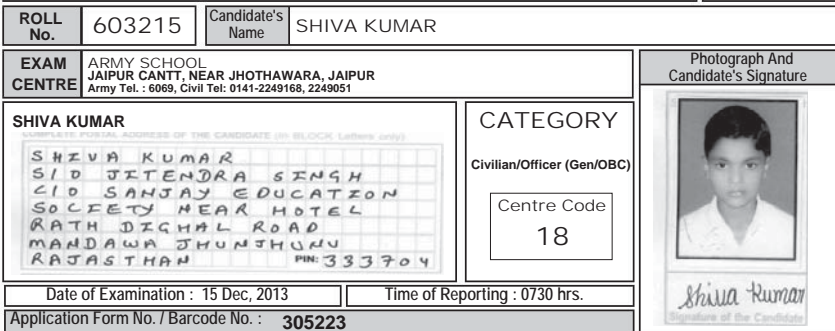 ROLL No. 603215 Candidate's Name SHIVA KUMAR
EXAM CENTRE
ARMY SCHOOL
JAIPUR CANTT, NEAR JHOTHAWARA, JAIPUR
Army Tel. : 6069, Civil Tel: 0141-2249168, 2249051
Photograph And
Candidate's Signature
SHIVA KUMAR
COMPLETE POSTAL ADDRESS OF THE CANDIDATE (in BLOCK Letters only)
SHIVA KUMAR
S/O JITENDRA SINGH
C/O SANJAY EDUCATION
SOCIETY NEAR HOTEL
RATH DIGHAL ROAD
MANDAWA JHUNJHUNU
RAJASTHAN PIN: 333704
CATEGORY
Civilian/Officer (Gen/OBC)
Centre Code
18
Shiva Kumar
Signature of the Candidate
Date of Examination : 15 Dec, 2013 Time of Reporting : 0730 hrs.
Application Form No. / Barcode No. : 305223